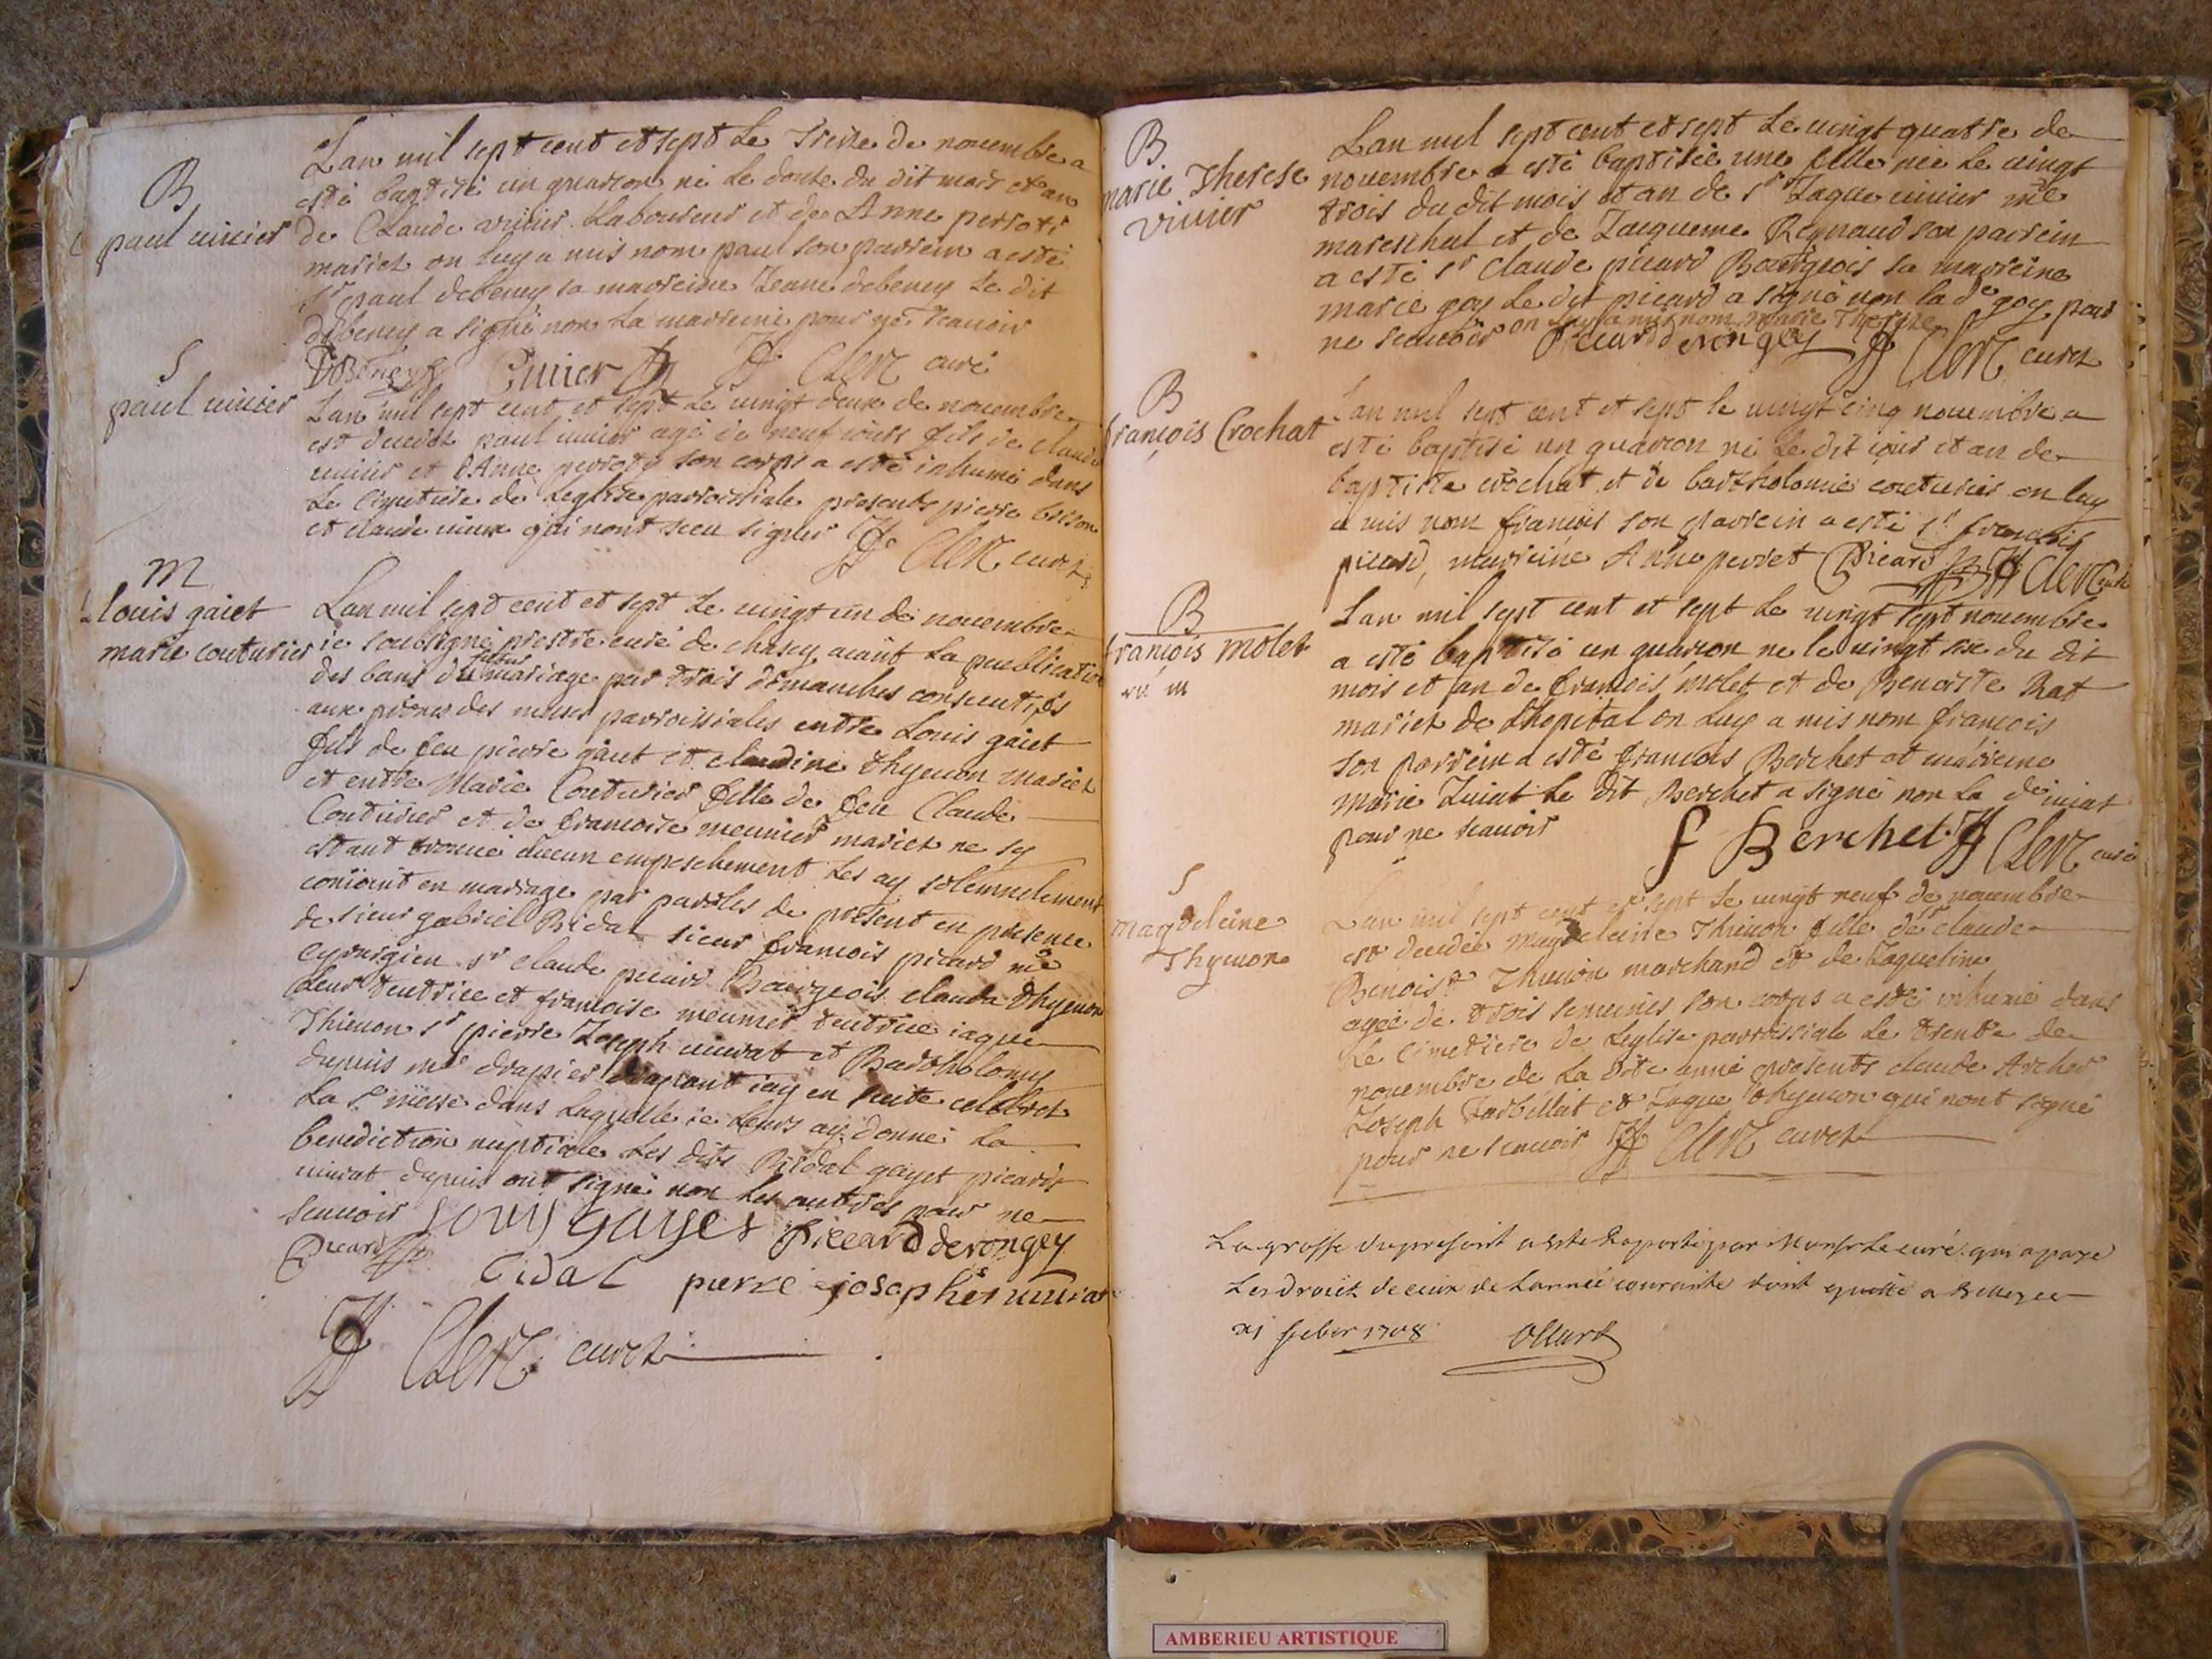 B
paul uiuier
Lan mil sept cent et sept Le treize de nouembre a
esté baptisé un guarcon né Le douze du dit mois et an
de Claude uiuier Laboureur et de Anne perroti
mariet on luy a mis nom paul son parrein a esté
sr paul debeney sa marreine Jeanne debeney Le dit
debeney a signé non La marreine pour ne scauoir
Debeney Cuuier Clerc curé
S
paul uiuier
Lan mil sept cent et sept Le uingt deux de nouembre
est decedez paul uiuier agé de neuf iours fils de claude
uiuier et dAnne perroty son corps a esté inhumé dans
Le Cimetiere de Leglise parroissiale presents pierre brison
et claude uieux qui nont sceu signer Clerc curez
M
Louis gaiet
marie couturier
Lan mil sept cent et sept Le uingt un de nouembre
ie soubsigné prestre curé de chasey aiant La publication
des bans du futur mariage par trois dimanches consecutifs
aux prones des messes parroissiales entre Louis gaiet
fils de feu pierre gaiet et claudine thyuon mariet
et entre Marie Couturier fille de feu Claude
Couturier et de francoise meunier mariet ne sy
estant trouué aucun empeschement Les ay solemnelement
conioint en mariage par parolles de present en presence
de sieur gabriel Bidal sieur francois picard me
cyrurgien sr claude picard Bourgeois claude thyuon
Leur tutrice et francoise meunier tutrice iaque
Thiuon sr pierre Joseph uiurat et Bartholomy
dupuis me drapier drapant iay en suite celebrez
La ste messe dans Laquelle ie Leurs ay donné La
benediction nuptiale Les dits Bidal gayet picards
uiurat dupuis ont signé non Les autres pour ne
scauoir Louis gayet
Picard Piccard derongey
Bidal pierre joseph uiurat
Clerc curez
B
marie Therese
uiuier
Lan mil sept cent et sept Le uingt quatre de
nouembre a esté baptisée une fille née Le uingt
trois du dit mois et an de sr Jaque uiuier me
mareschal et de Jacqueme Regnaud son parrein
a esté sr Claude picard Bourgeois sa marreine
marie goy Le dit picard a signé non la de goy pour
on luy a mis nom marie Therese
ne scauoir Picard derongey Clerc curez
B
francois Crochat
Lan mil sept cent et sept le uingt cinq nouembre a
esté baptisé un guarcon né Le dit iour et an de
baptiste crochat et de bartholomie couturier on luy
a mis nom francois son parrein a esté sr francois
picard, marreine Anne perret Picard Clerc curé
B
francois Molet
Lan mil sept cent et sept Le uingt sept nouembre
a esté baptisé un guarcon ne le uingt six du dit
mois et an de francois molet et de Benoiste Rat
mariet de Lhopital on Luy a mis nom francois
son parrein a esté francois Berchet et marreine
marie Juiat Le dit Berchet a signé non La de iuiat
pour ne scauoir f Berchet Clerc curé
S
Magdeleine
Thyuon
Lan mil sept cent et sept Le uingt neuf de nouembre
est decedée magdeleine Thiuon fille de sr claude
Benoist Thiuon marchand et de Jaqueline
agée de trois semaines son corps a esté inhumé dans
Le Cimetiere de Leglise parroissiale Le trente de
nouembre de La dite anné presents claude Archer
Joseph Jarbillat et Jaque thyuon qui nont signé
pour ne scauoir Clerc curez
La grosse du present a esté Raporté par Monsr Le curé qui a payé
Les droitz de ceux de Lannée courante dont quitté a Belley ce
xi febvr 1708
AMBERIEU ARTISTIQUE